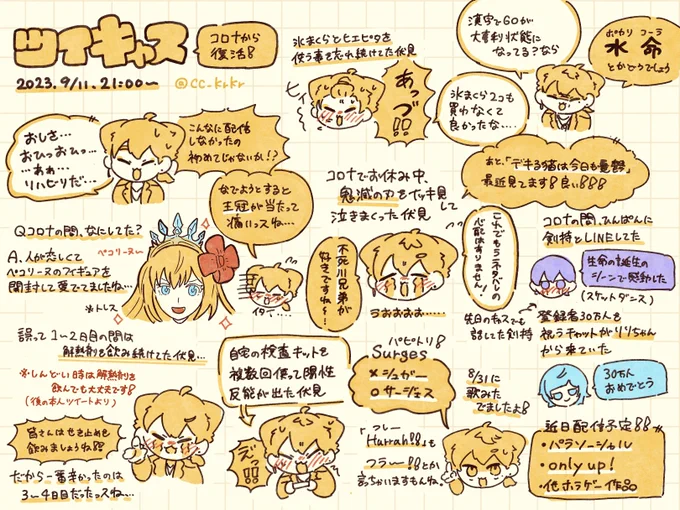 ツイキャス
コロナから
復活!!
2023.9/11.21:00〜
@CC_krkr
おひさ…
おひっおひっ…
…あれ…
リハビリだ…
こんなに配信
しなかったの
初めてじゃないか!?
氷まくらとヒエピタを
使う事を忘れ続けてた伏見
ヒィ
あっづ!!
漢字でGOが
大喜利状態に
なってる?なら
氷まくら2コも
買わなくて
良かったな…
ポカリ コーラ
水 命
とかどうでしょう
Qコロナの間、なにしてた?
A.人が恋しくて
ペコリーヌのフィギュアを
開封して愛でてましたね…
ペコリーヌ〜
※トレス
なでようとすると
王冠が当たって
痛いっスね…
イタイ…
コロナでお休み中、
鬼滅の刃をイッキ見して
泣きまくった伏見
不死川兄弟が
好きですね〜!
うおおおお……
これでもうネタバレの
心配はありません!
あと、「デキる猫は今日も憂鬱」
最近見てます!!良い!!!
コロナの間、ひんぱんに
剣持とLINEしてた
生命の誕生の
シーンで感動した
(スケットダンス)
先日のキャスでも
話してた剣持
登録者30万人を
祝うチャットがりりちゃん
から来ていた
30万人
おめでとう
誤って1〜2日目の間は
解熱剤を飲み続けてた伏見…
※しんどい時は解熱剤を
飲んでも大丈夫です!!
(後の本人ツイートより)
皆さんはせき止めを
飲みましょうね!!
だから一番辛かったのは
3〜4日目だったっスね…
自宅の検査キットを
複数回使って陽性
反応が出た伏見
えっ!!
パピトリ!!
Surges
×シュガー
○サージェス
「フレー
Hurrah!!」も
フラー!!とか
言っちゃいますもんね!
8/31に
歌みた
でましたよ!!
近日配信予定!!
・パラソーシャル
・only up!
・他ホラゲー作品